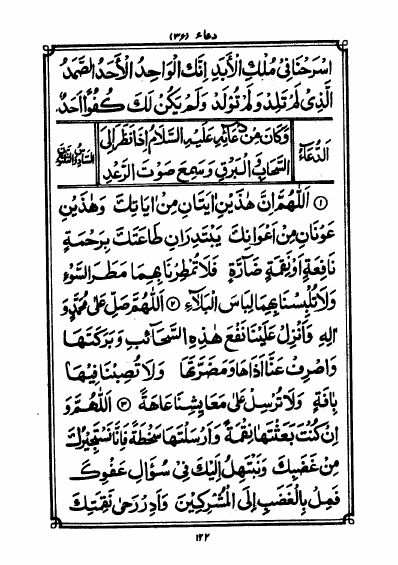 دعاء (۳۶)
اسْرَحْنَا فِي مُلْكِ الْأَبَدِ إِنَّكَ الْوَاحِدُ الْأَحَدُ الصَّمَدُ
الَّذِي لَمْ تَلِدْ وَلَمْ تُولَدْ وَلَمْ يَكُنْ لَكَ كُفُوًا أَحَدٌ
الدُّعَاءُ
وَكَانَ مِنْ دُعَائِهِ عَلَيْهِ السَّلَامُ إِذَا نَظَرَ إِلَى
السَّحَابِ وَالْبَرْقِ وَسَمِعَ صَوْتَ الرَّعْدِ
السَّادِسُ وَالثَّلَاثُونَ
① اَللّٰهُمَّ إِنَّ هٰذَيْنِ اٰيَتَانِ مِنْ اٰيَاتِكَ وَهٰذَيْنِ
عَوْنَانِ مِنْ أَعْوَانِكَ يَبْتَدِرَانِ طَاعَتَكَ بِرَحْمَةٍ
نَافِعَةٍ أَوْ نِقْمَةٍ ضَارَّةٍ فَلَا تُمْطِرْنَا بِهِمَا مَطَرَ السَّوْءِ
وَلَا تُلْبِسْنَا بِهِمَا لِبَاسَ الْبَلَاءِ ② اَللّٰهُمَّ صَلِّ عَلٰى مُحَمَّدٍ وَ
اٰلِهِ وَأَنْزِلْ عَلَيْنَا نَفْعَ هٰذِهِ السَّحَائِبِ وَبَرَكَتَهَا
وَاصْرِفْ عَنَّا أَذَاهَا وَمَضَرَّتَهَا وَلَا تُصِبْنَا فِيهَا
بِاٰفَةٍ وَلَا تُرْسِلْ عَلٰى مَعَايِشِنَا عَاهَةً ③ اَللّٰهُمَّ وَ
إِنْ كُنْتَ بَعَثْتَهَا نِقْمَةً وَأَرْسَلْتَهَا سَخْطَةً فَإِنَّا نَسْتَجِيرُكَ
مِنْ غَضَبِكَ وَنَبْتَهِلُ إِلَيْكَ فِي سُؤَالِ عَفْوِكَ
فَمِلْ بِالْغَضَبِ إِلَى الْمُشْرِكِينَ وَأَدِرْ رَحٰى نَقِمَتِكَ
۱۲۲